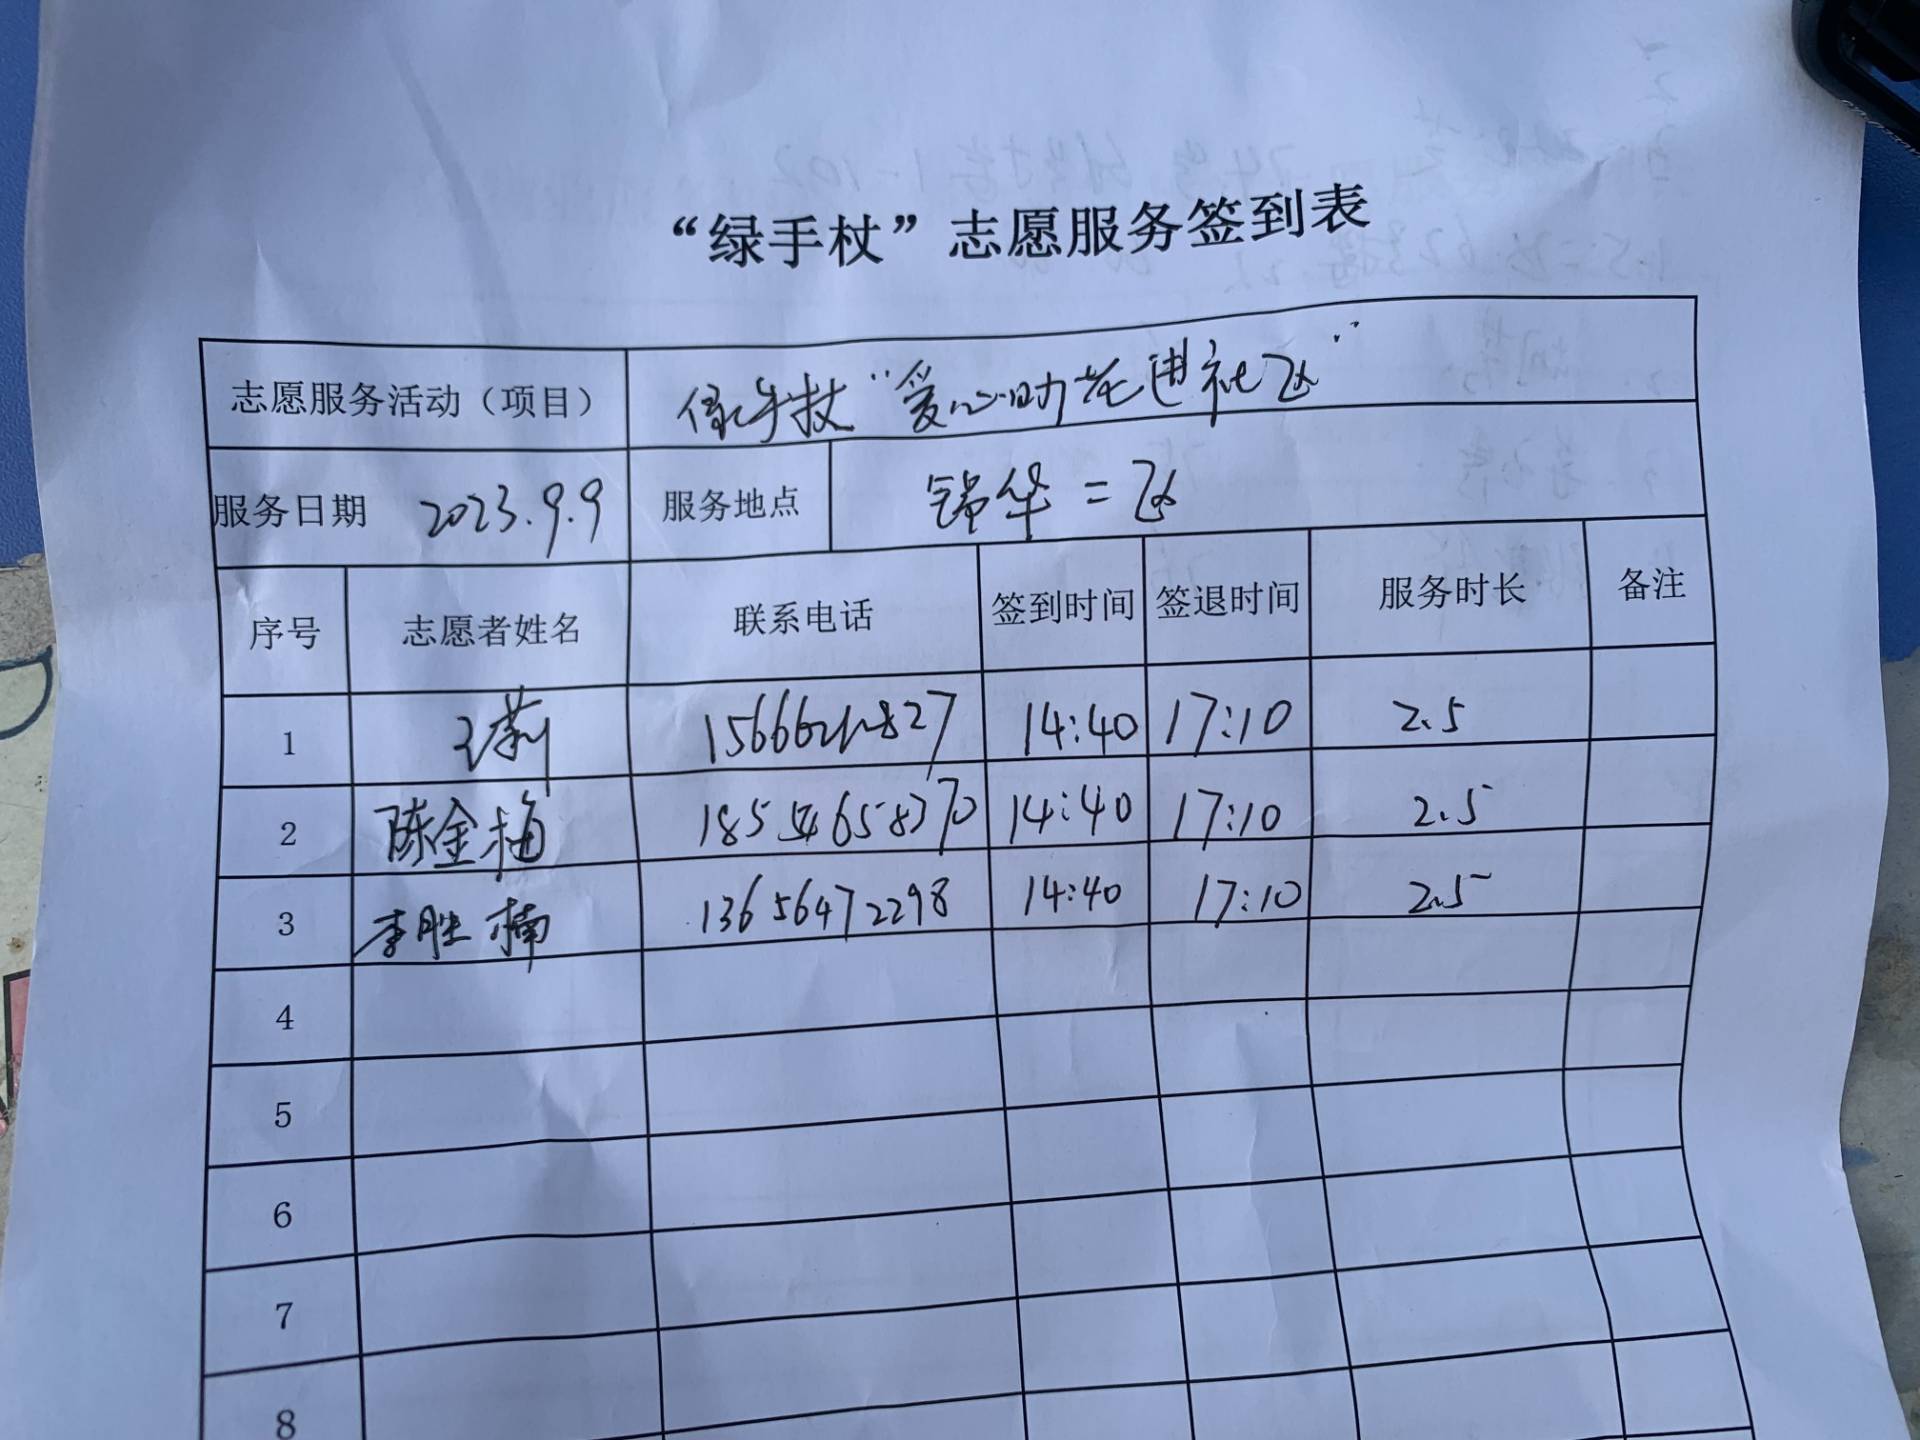 “绿手杖”志愿服务签到表
志愿服务活动（项目） 绿手杖“爱心助老进社区”
服务日期 2023.9.9 服务地点 锦华二区
序号 志愿者姓名 联系电话 签到时间 签退时间 服务时长 备注
1 王莉 14:40 17:10 2.5
2 陈金梅 14:40 17:10 2.5
3 李胜楠 13656472298 14:40 17:10 2.5
4
5
6
7
8